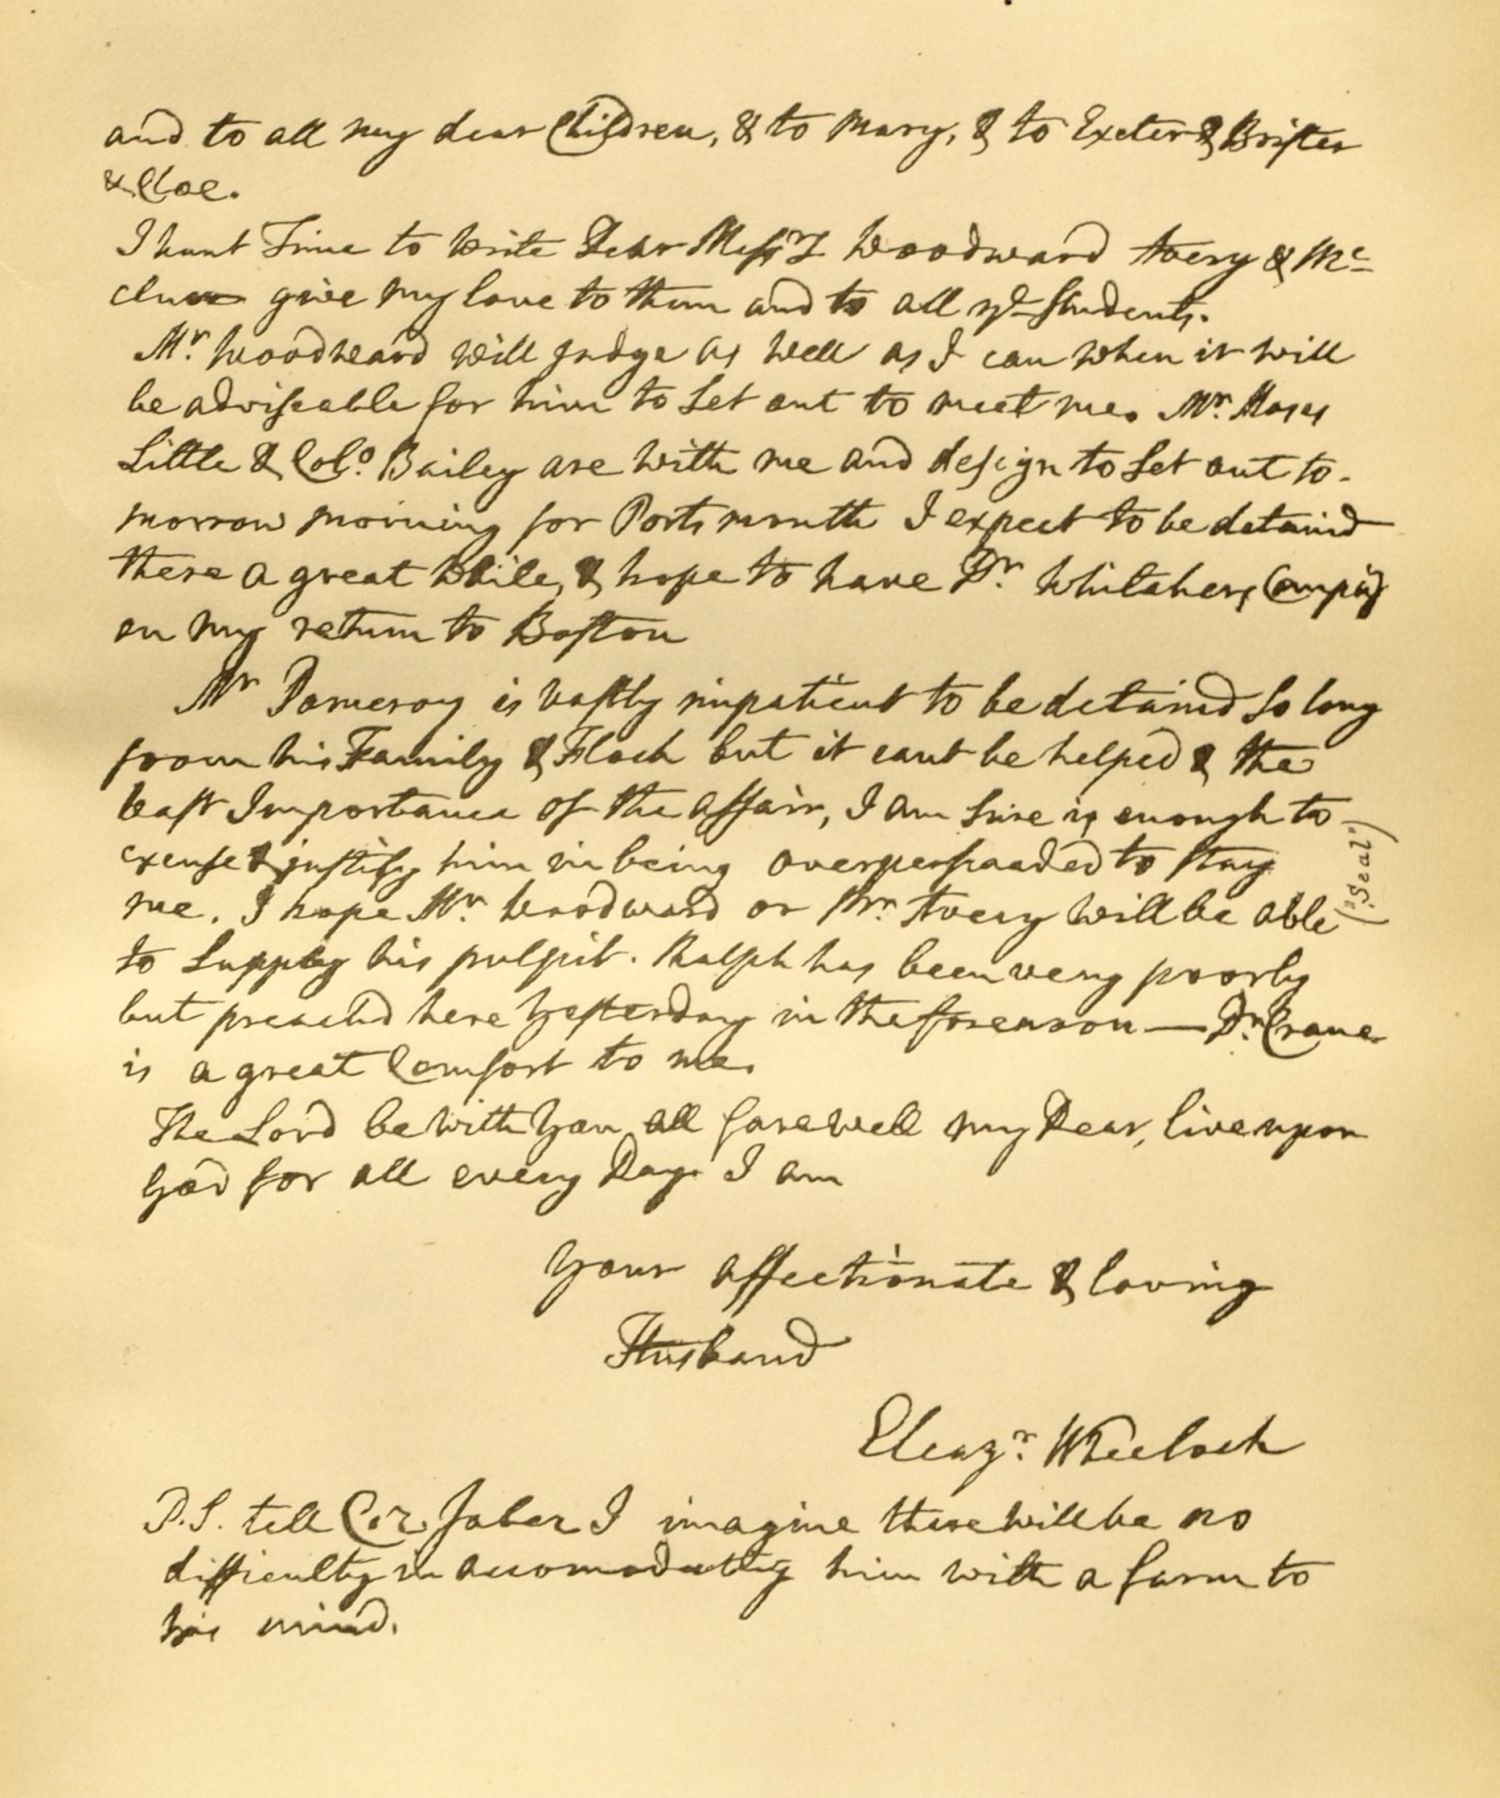 and to all my dear Children, & to Mary, & to Exeter & Brister
& Cloe.
I hant Time to write Dear Messrs Woodward Avery & Mc
clure give my love to them and to all ye Students.
Mr. Woodward will judge as well as I can when it will
be adviseable for him to set out to meet me. Mr. Moses
Little & Colo. Bailey are with me and design to set out to-
morrow morning for Portsmouth I expect to be detaind
there a great while, & hope to have Dr. Whitakers Compy
on my return to Boston
Mr Pomeroy is vastly impatient to be detaind so long
from his Family & Flock but it cant be helped & the
vast Importance of the affair, I am sure is enough to
excuse & justify him in being overperswaded to stay
me. I hope Mr. Woodward or Mr. Avery will be able
("Seal")
to supply his pulpit. Ralph has been very poorly
but preachd here yesterday in the forenoon — Dr. Crane
is a great Comfort to me.
The Lord be with you all farewell my Dear, live upon
God for all every Day. I am
Your affectionate & loving
Husband
Eleazr. Wheelock
P.S. tell I imagine there will be no
difficulty in accomodating him with a farm to
his mind.